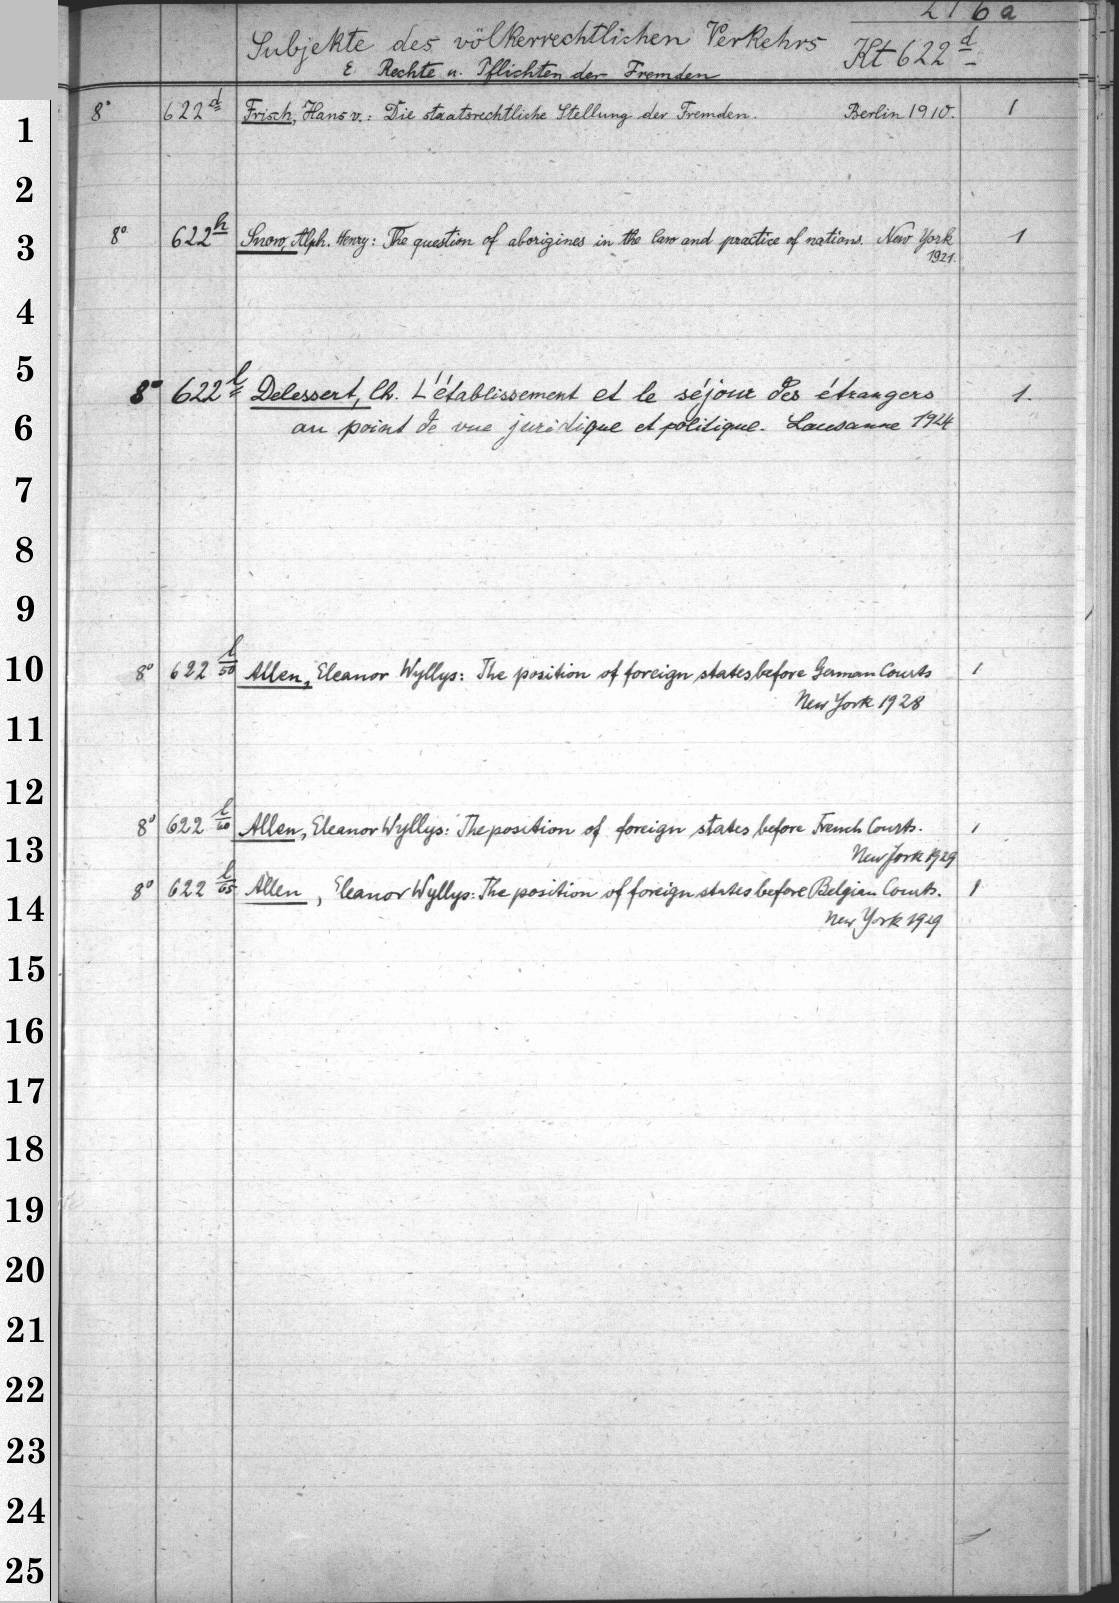 216a
Subjekte des völkerrechtlichen Verkehrs Kt 622 d
E. Rechte u. Pflichten der Fremden
1 8° 622 d Frisch, Hans v.: Die staatsrechtliche Stellung der Fremden. Berlin 1910. 1
2
3 8° 622 h Snow, Alph. Henry: The question of aborigines in the law and practice of nations. New York 1
1921.
4
5
8° 622 l Delessert, Ch. L'établissement et le séjour des étrangers 1.
6 au point de vue juridique et politique. Lausanne 1924
7
8
9
10 8° 622 l/50 Allen, Eleanor Wyllys: The position of foreign states before German Courts 1
New York 1928
11
12
13 8° 622 l/60 Allen, Eleanor Wyllys: The position of foreign states before French Courts. 1
New York 1929
14 8° 622 l/65 Allen, Eleanor Wyllys: The position of foreign states before Belgian Courts. 1
New York 1929
15
16
17
18
19
20
21
22
23
24
25